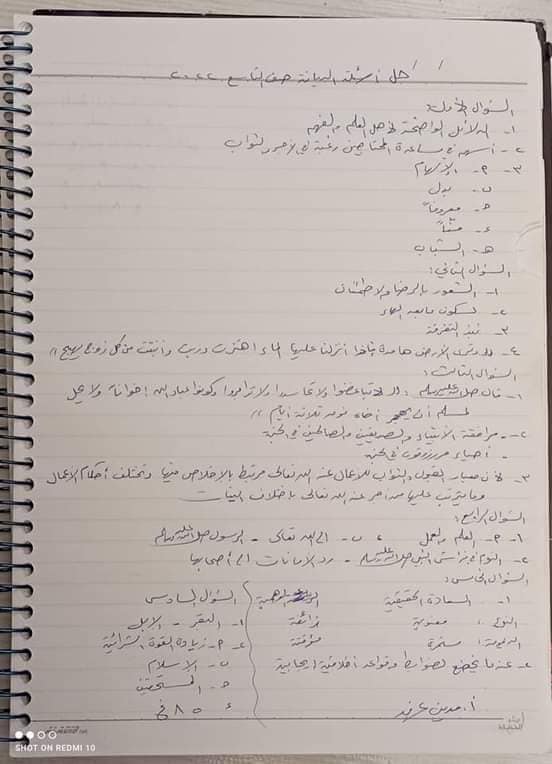 حل أسئلة الديانة صف التاسع ٢٠٢٢
السؤال الأول:
١- الدلائل الواضحة لأهل العلم والفهم
٢- أسهم في مساعدة المحتاجين رغبة في الأجر والثواب
٣- P- الإسهام
ب- بدل
ح- معروفاً
د- متاً
هـ- الشباب
السؤال الثاني:
١- الشعور بالرضا والاطمئنان
٢- لسكون ما بعد الهاء
٣- نبذ التفرقة
٤- وترى الأرض هامدة فإذا أنزلنا عليها الماء اهتزت وربت وأنبتت من كل زوج بهيج))
السؤال الثالث:
١- قال صلى الله عليه وسلم: لا تباغضوا ولا تحاسدوا ولا تدابروا وكونوا عباد الله إخواناً ولا يحل
لمسلم أن يهجر أخاه فوق ثلاثة أيام))
٢- مرافقة الأنبياء والصديقين والصالحين في الجنة
- أحياء يرزقون في الجنة
٣- لأن معيار القبول والثواب للأعمال عند الله تعالى مرتبط بالإخلاص فيها وتختلف أحكام الأعمال
وما يترتب عليها من أجر عند الله تعالى باختلاف النيات
السؤال الرابع:
١- P- العلم والعمل ، ب- إلى الله تعالى - الرسول صلى الله عليه وسلم
٢- النوم في فراش النبي صلى الله عليه وسلم - رد الأمانات إلى أصحابها
السؤال الخامس:
١- السعادة الحقيقية الوهمية
النوع: معنوية زائفة
الديمومة: مستمرة مؤقتة
٢- عندما يخضع لضوابط وقواعد أخلاقية إيجابية
السؤال السادس
١- البقر - الإبل
٢- P- زيادة القوة الشرائية
ب- الإسلام
ح- المستحقين
د- ٨٥ غ
SHOT ON REDMI 10